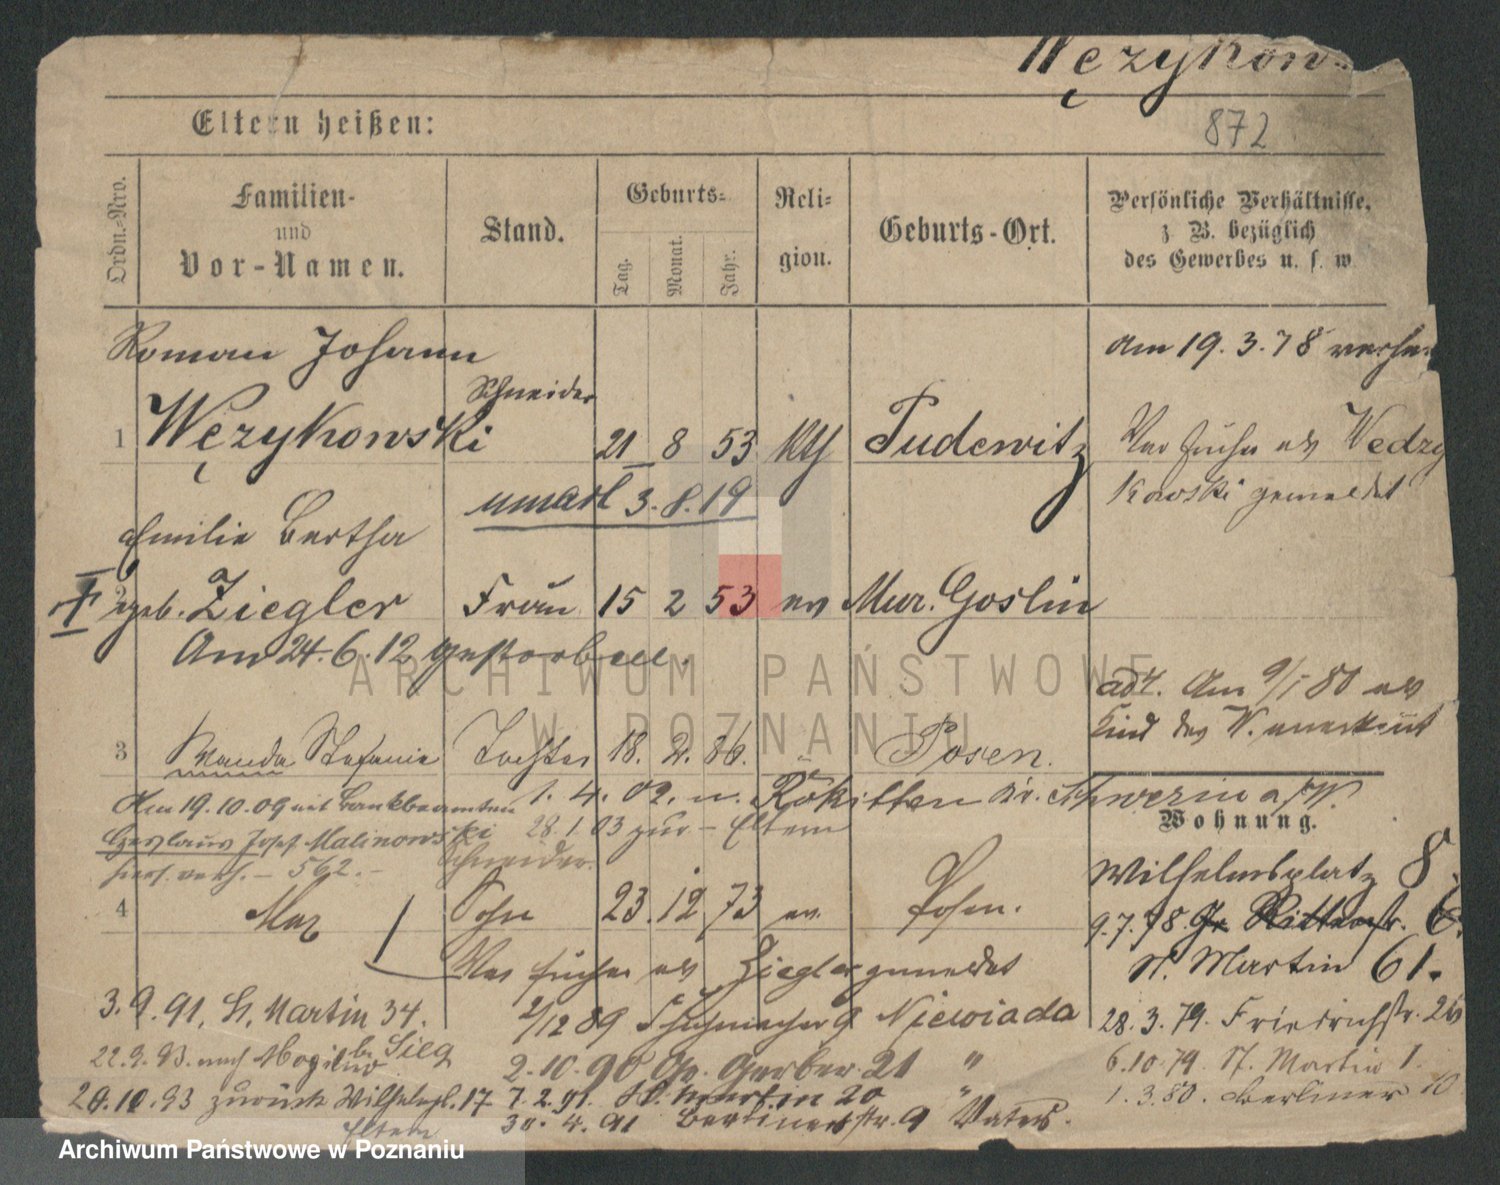 Węzykow
872
Eltern heißen:
Ordn.-Nro.
Familien-
und
Vor-Namen.
Stand.
Geburts-
Tag.
Monat.
Jahr.
Reli-
gion.
Geburts-Ort.
Persönliche Verhältnisse,
z. B. bezüglich
des Gewerbes u. s. w.
Roman Johann
am 19.3.78
1 Węzykowski Schneider 21 8 53 kth Pudewitz
War früher als Wedzy
kowski gemeldet
3.8.19
Emilie Bertha
2 geb. Ziegler Frau 15 2 53 ev Mur. Goslin
Am 24.6.12 gestorben.
ad 4. Am 9/1 80 als
Kind des W. anerkannt
3 Wanda Stefanie Tochter 18. 2. 86. " Posen.
1. 4. 02. n. Rokitten Kr. Schwerin a/W.
Am 19.10.09 mit Bankbeamten
Czeslaus Josef Malinowski
28.1.03 zur - Eltern
Schneider.
verh. - 562. -
Wohnung.
Wilhelmsplatz 8.
4 Max Sohn 23. 12 73 ev. Posen.
9.7.78. Gr. Ritterstr. 6.
War früher als Ziegler gemeldet
St. Martin 61.
3.9.91. St. Martin 34.
2/12 89 Schuhmacher 9 Niewiada
28.3.79. Friedrichstr. 26
22.9.93. nach Mogilno
b. Sieg
2.10.90 Gr. Gerber 21 "
6.10.79. St. Martin 1.
20.10.93 zurück Wilhelmpl. 17
7.2.91. St. Martin 20 "
1.3.80. Berliner 10
Eltern
30.4.91 Berlinerstr. 9 Vaters.
ARCHIWUM PAŃSTWOWE
W POZNANIU
Archiwum Państwowe w Poznaniu